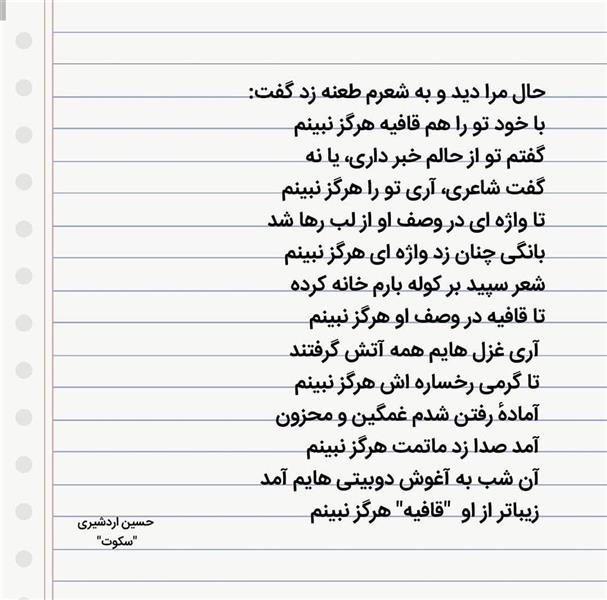 حال مرا دید و به شعرم طعنه زد گفت:
با خود تو را هم قافیه هرگز نبینم
گفتم تو از حالم خبر داری، یا نه
گفت شاعری، آری تو را هرگز نبینم
تا واژه ای در وصف او از لب رها شد
بانگی چنان زد واژه ای هرگز نبینم
شعر سپید بر کوله بارم خانه کرده
تا قافیه در وصف او هرگز نبینم
آری غزل هایم همه آتش گرفتند
تا گرمی رخساره اش هرگز نبینم
آمادهٔ رفتن شدم غمگین و محزون
آمد صدا زد ماتمت هرگز نبینم
آن شب به آغوش دوبیتی هایم آمد
زیباتر از او "قافیه" هرگز نبینم
حسین اردشیری
"سکوت"